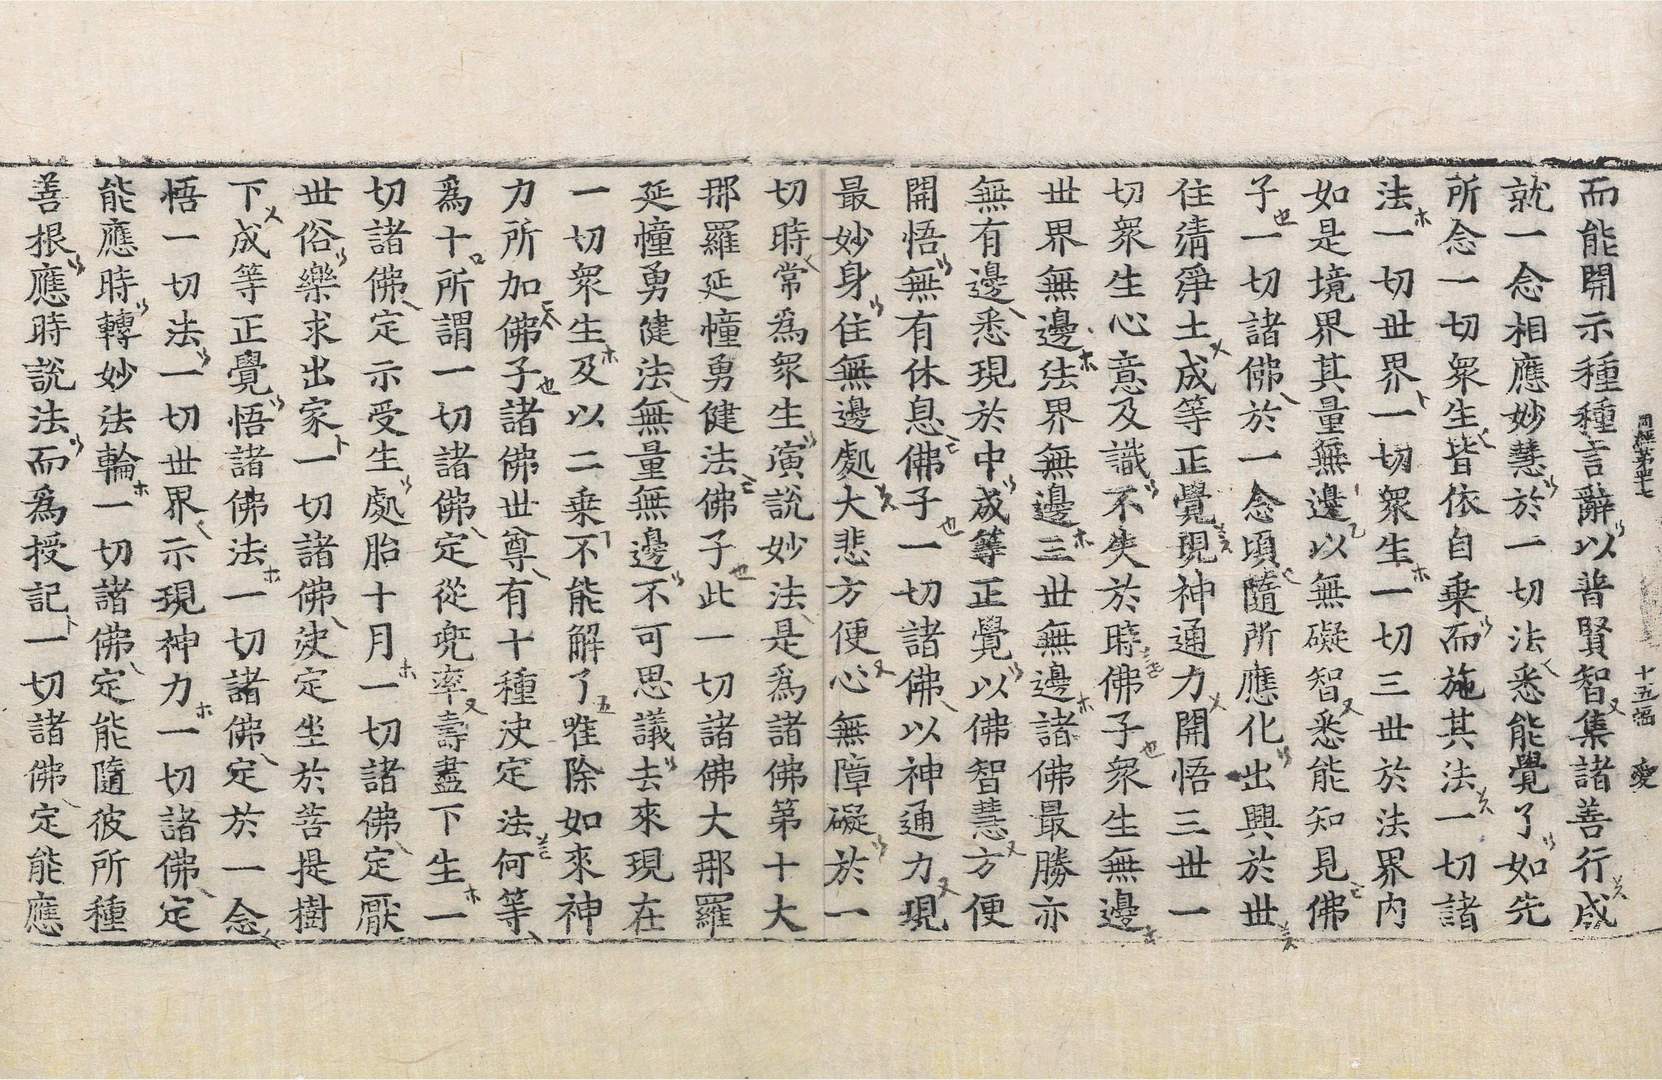 周經第四十七 十五幅 愛
而能開示種種言辭以普賢智集諸善行成
就一念相應妙慧於一切法悉能覺了如先
所念一切衆生皆依自乗而施其法一切諸
法一切世界一切衆生一切三世於法界内
如是境界其量無邊以無礙智悉能知見佛
子一切諸佛於一念頃隨所應化出興於世
住清淨土成等正覺現神通力開悟三世一
切衆生心意及識不失於時佛子衆生無邊
世界無邊法界無邊三世無邊諸佛最勝亦
無有邊悉現於中成等正覺以佛智慧方便
開悟無有休息佛子一切諸佛以神通力現
最妙身住無邊處大悲方便心無障礙於一
切時常爲衆生演説妙法是爲諸佛第十大
那羅延幢勇健法佛子此一切諸佛大那羅
延幢勇健法無量無邊不可思議去來現在
一切衆生及以二乗不能解了唯除如來神
力所加佛子諸佛世尊有十種決定法何等
爲十所謂一切諸佛定從兜率壽盡下生一
切諸佛定示受生處胎十月一切諸佛定厭
世俗樂求出家一切諸佛決定坐於菩提樹
下成等正覺悟諸佛法一切諸佛定於一念
悟一切法一切世界示現神力一切諸佛定
能應時轉妙法輪一切諸佛定能隨彼所種
善根應時説法而爲授記一切諸佛定能應